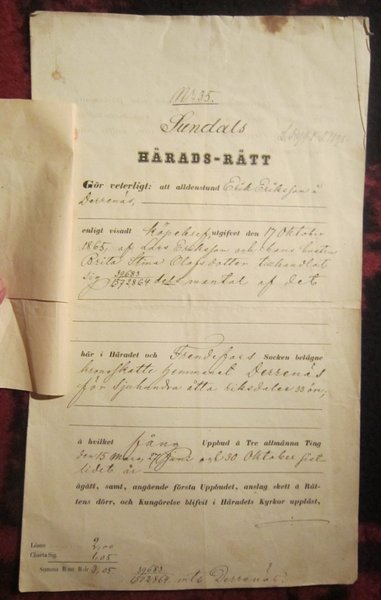 No 35.
Sundals
HÄRADS-RÄTT
Gör veterligt: att alldenstund Erik Eriksson i
Derrenäs,
enligt visadt köpebref utgifvet den 17 Oktober
1865, af Lars Eriksson och hans hustru
Brita Stina Olofsdotter tillhandlat
sig 39683/572864 dels mantal af det
här i Häradet och Frendefors Socken belägne
kronoskatte hemmanet Derrenäs
för Sjuhundra åtta riksdaler 33 öre,
å hvilket fång Uppbud å Tre allmänna Ting
den 15 Mars, Juni och 30 Oktober sist-
lidet år
ägått, samt, angående första Uppbudet, anslag skett å Rät-
tens dörr, och Kungörelse blifvit i Häradets Kyrkor uppläst,
Lösen 2,00
Charta Sig. 1,05
Summa R:mt R:dr 3,05
39683/572864 mtl Derrenäs.